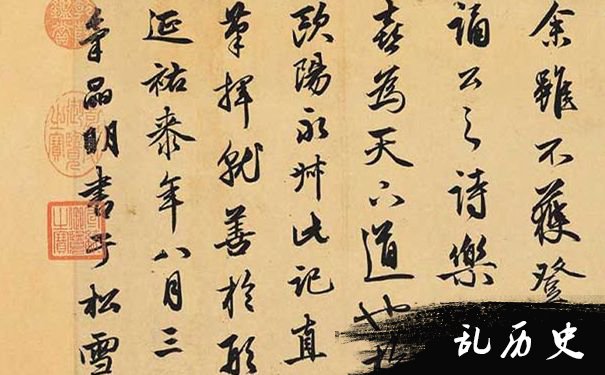 余雖不獲登
誦公之詩樂
喜為天下道也
歐陽永叔此記直
筆揮就善於形
延祐泰年八月三
孛品明書于松雪
乱历史